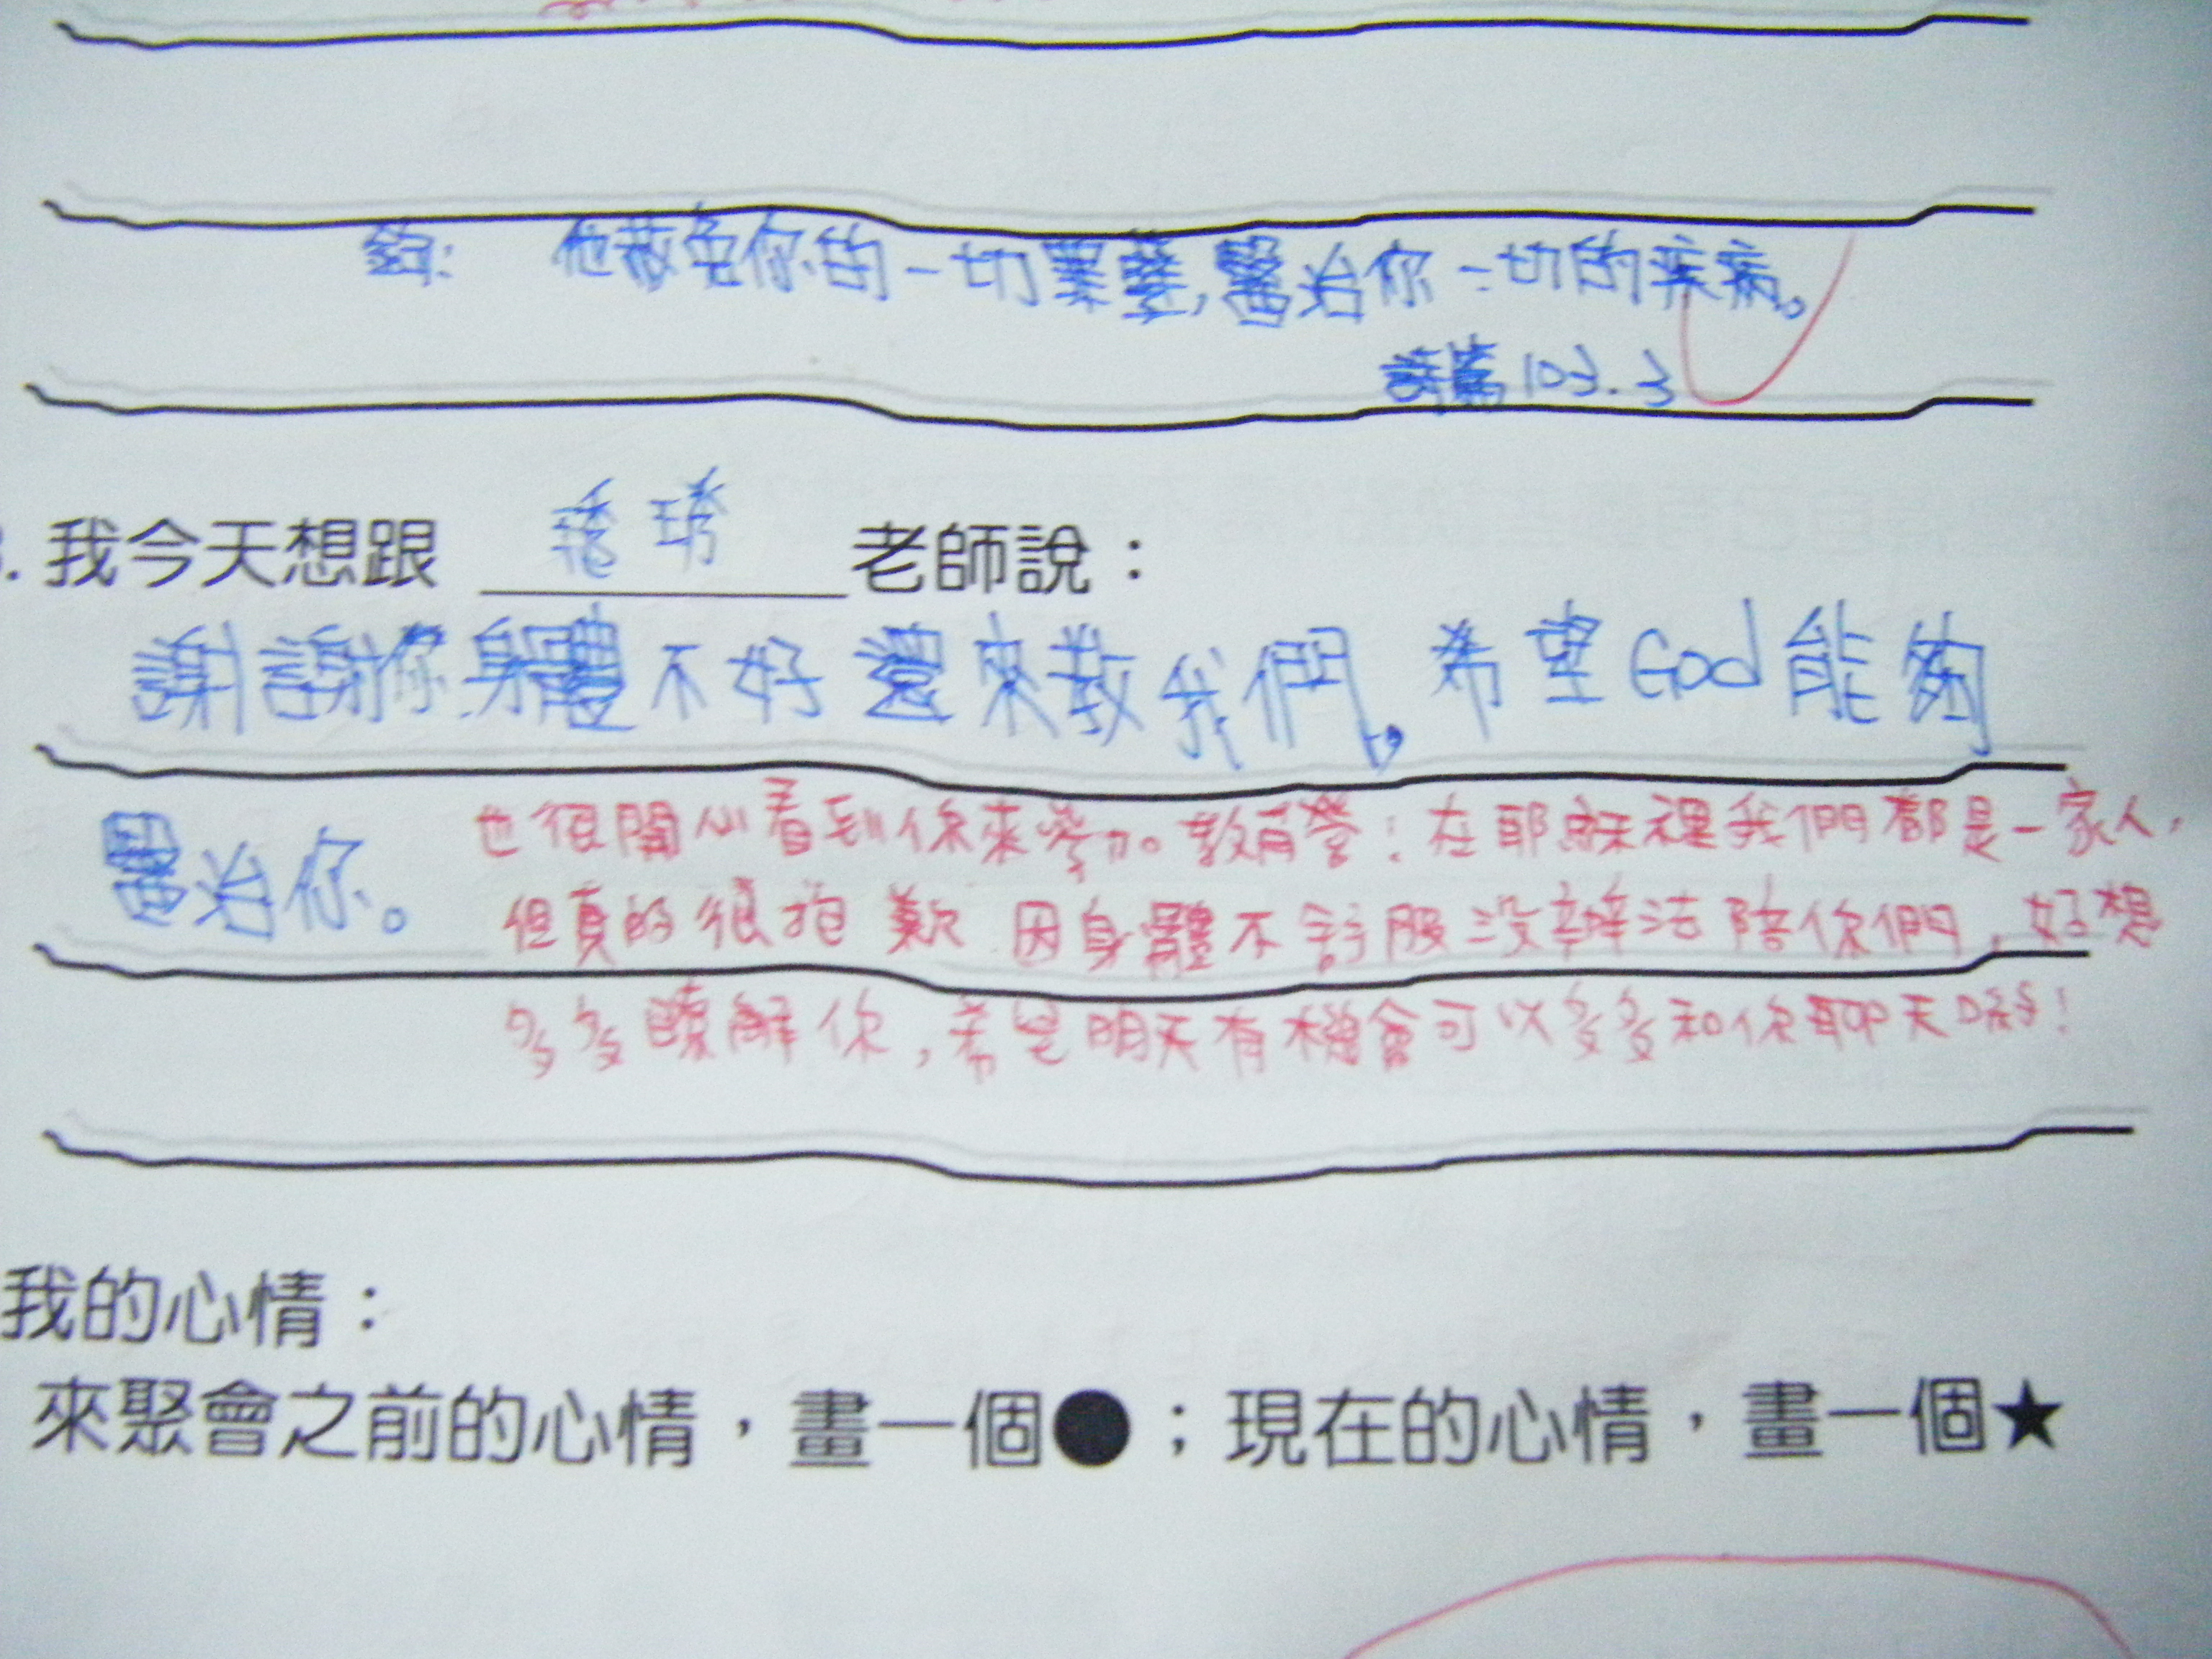 他赦免你的一切罪孽,醫治你一切的疾病。
詩篇103.3
3. 我今天想跟 老師說：
謝謝你身體不好還來教我們,希望God能夠
醫治你。
也很開心看到你來參加教育營!在耶穌裡我們都是一家人,
但真的很抱歉因身體不舒服沒辦法陪你們,好想
多多瞭解你,希望明天有機會可以多多和你聊天哦!
我的心情：
來聚會之前的心情，畫一個●；現在的心情，畫一個★